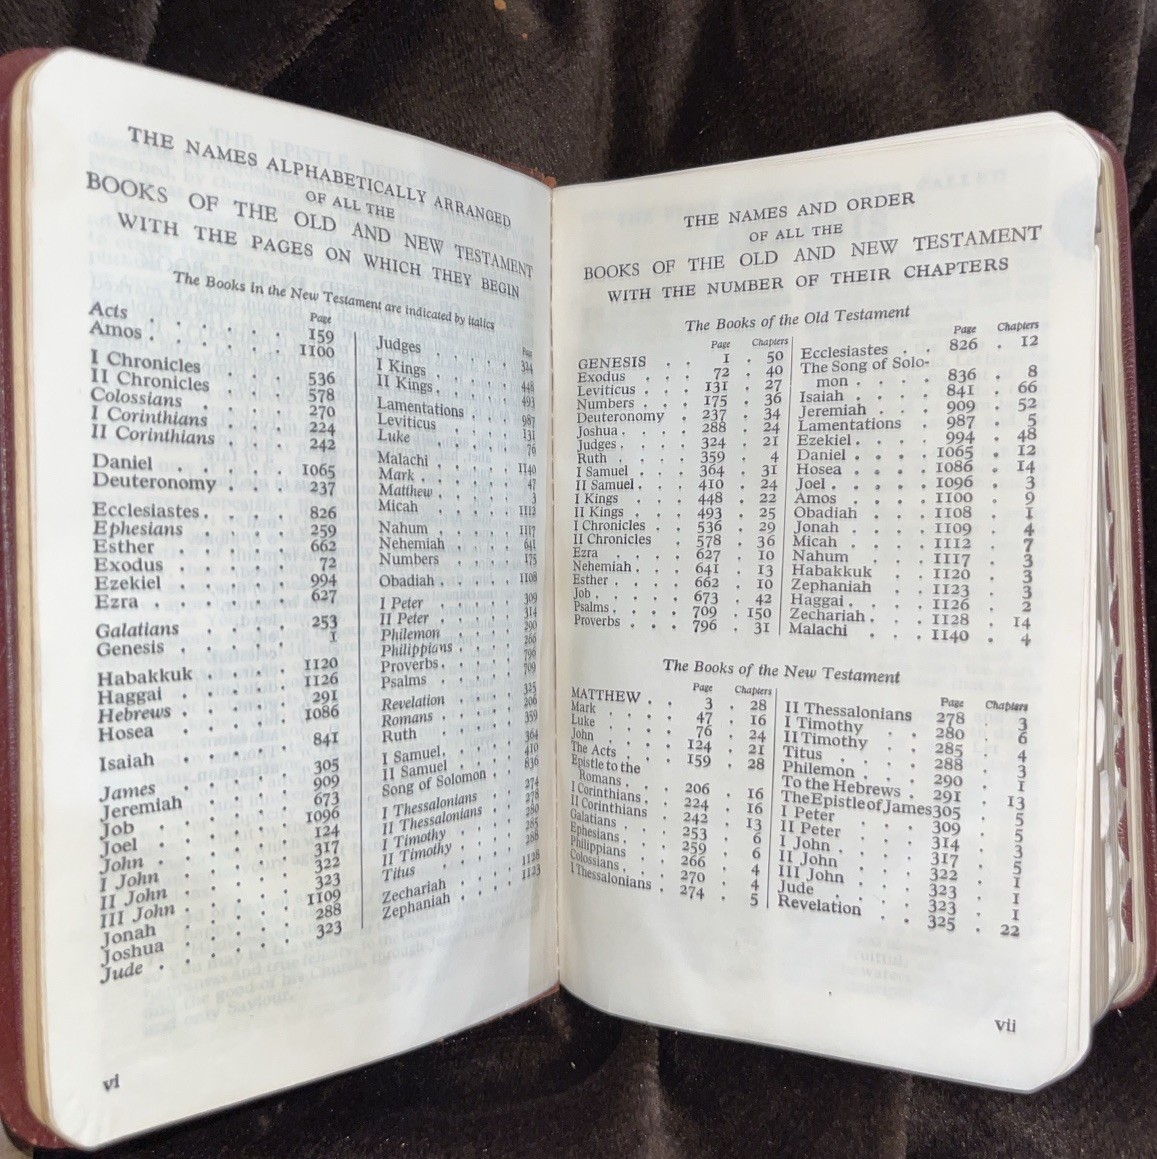 THE NAMES ALPHABETICALLY ARRANGED
OF ALL THE
BOOKS OF THE OLD AND NEW TESTAMENT
WITH THE PAGES ON WHICH THEY BEGIN
The Books in the New Testament are indicated by italics
Page
Acts . . . . . . 159
Amos . . . . . . 1100
I Chronicles . . . 536
II Chronicles . . . 578
Colossians . . . . 270
I Corinthians . . . 224
II Corinthians . . . 242
Daniel . . . . . 1065
Deuteronomy . . . 237
Ecclesiastes . . . . 826
Ephesians . . . . 259
Esther . . . . . 662
Exodus . . . . . 72
Ezekiel . . . . . 994
Ezra . . . . . . 627
Galatians . . . . 253
Genesis . . . . . 1
Habakkuk . . . . 1120
Haggai . . . . . 1126
Hebrews . . . . . 291
Hosea . . . . . 1086
Isaiah . . . . . 841
James . . . . . 305
Jeremiah . . . . 909
Job . . . . . . 673
Joel . . . . . . 1096
John . . . . . . 124
I John . . . . . 317
II John . . . . . 322
III John . . . . . 323
Jonah . . . . . 1109
Joshua . . . . . 288
Jude . . . . . . 323
Page
Judges . . . . . 324
I Kings . . . . . 448
II Kings . . . . . 493
Lamentations . . . . 987
Leviticus . . . . . 131
Luke . . . . . 76
Malachi . . . . . 1140
Mark . . . . . . 47
Matthew . . . . . 3
Micah . . . . . 1112
Nahum . . . . . 1117
Nehemiah . . . . 641
Numbers . . . . . 175
Obadiah . . . . . 1108
I Peter . . . . . 309
II Peter . . . . . 314
Philemon . . . . 290
Philippians . . . . 266
Proverbs . . . . . 796
Psalms . . . . . 709
Revelation . . . . 325
Romans . . . . . 206
Ruth . . . . . 359
I Samuel . . . . . 364
II Samuel . . . . 410
Song of Solomon . . . 836
I Thessalonians . . . 274
II Thessalonians . . . 278
I Timothy . . . . 280
II Timothy . . . . 285
Titus . . . . . 288
Zechariah . . . . 1128
Zephaniah . . . . 1123
vi
THE NAMES AND ORDER
OF ALL THE
BOOKS OF THE OLD AND NEW TESTAMENT
WITH THE NUMBER OF THEIR CHAPTERS
The Books of the Old Testament
Page Chapters
GENESIS . . 1 . 50
Exodus . . . 72 . 40
Leviticus . . . 131 . 27
Numbers . . . 175 . 36
Deuteronomy . . 237 . 34
Joshua . . . . 288 . 24
Judges . . . . 324 . 21
Ruth . . . . 359 . 4
I Samuel . . . 364 . 31
II Samuel . . . 410 . 24
I Kings . . . 448 . 22
II Kings . . . 493 . 25
I Chronicles . . 536 . 29
II Chronicles . . 578 . 36
Ezra . . . . 627 . 10
Nehemiah . . . 641 . 13
Esther . . . . 662 . 10
Job . . . . . 673 . 42
Psalms . . . . 709 . 150
Proverbs . . . 796 . 31
Page Chapters
Ecclesiastes . . 826 . 12
The Song of Solo-
mon . . . . 836 . 8
Isaiah . . . . 841 . 66
Jeremiah . . . 909 . 52
Lamentations . . 987 . 5
Ezekiel . . . . 994 . 48
Daniel . . . . 1065 . 12
Hosea . . . . 1086 . 14
Joel . . . . . 1096 . 3
Amos . . . . 1100 . 9
Obadiah . . . 1108 . 1
Jonah . . . . 1109 . 4
Micah . . . . 1112 . 7
Nahum . . . . 1117 . 3
Habakkuk . . 1120 . 3
Zephaniah . . 1123 . 3
Haggai . . . . 1126 . 2
Zechariah . . . 1128 . 14
Malachi . . . 1140 . 4
The Books of the New Testament
Page Chapters
MATTHEW . . 3 . 28
Mark . . . . 47 . 16
Luke . . . . 76 . 24
John . . . . 124 . 21
The Acts . . . 159 . 28
Epistle to the
Romans . . . 206 . 16
I Corinthians . . 224 . 16
II Corinthians . . 242 . 13
Galatians . . . 253 . 6
Ephesians . . . 259 . 6
Philippians . . . 266 . 4
Colossians . . . 270 . 4
I Thessalonians . 274 . 5
Page Chapters
II Thessalonians 278 . 3
I Timothy . . 280 . 6
II Timothy . . 285 . 4
Titus . . . . 288 . 3
Philemon . . . 290 . 1
To the Hebrews . 291 . 13
The Epistle of James 305 . 5
I Peter . . . . 309 . 5
II Peter . . . 314 . 3
I John . . . . 317 . 5
II John . . . . 322 . 1
III John . . . 323 . 1
Jude . . . . 323 . 1
Revelation . . 325 . 22
vii